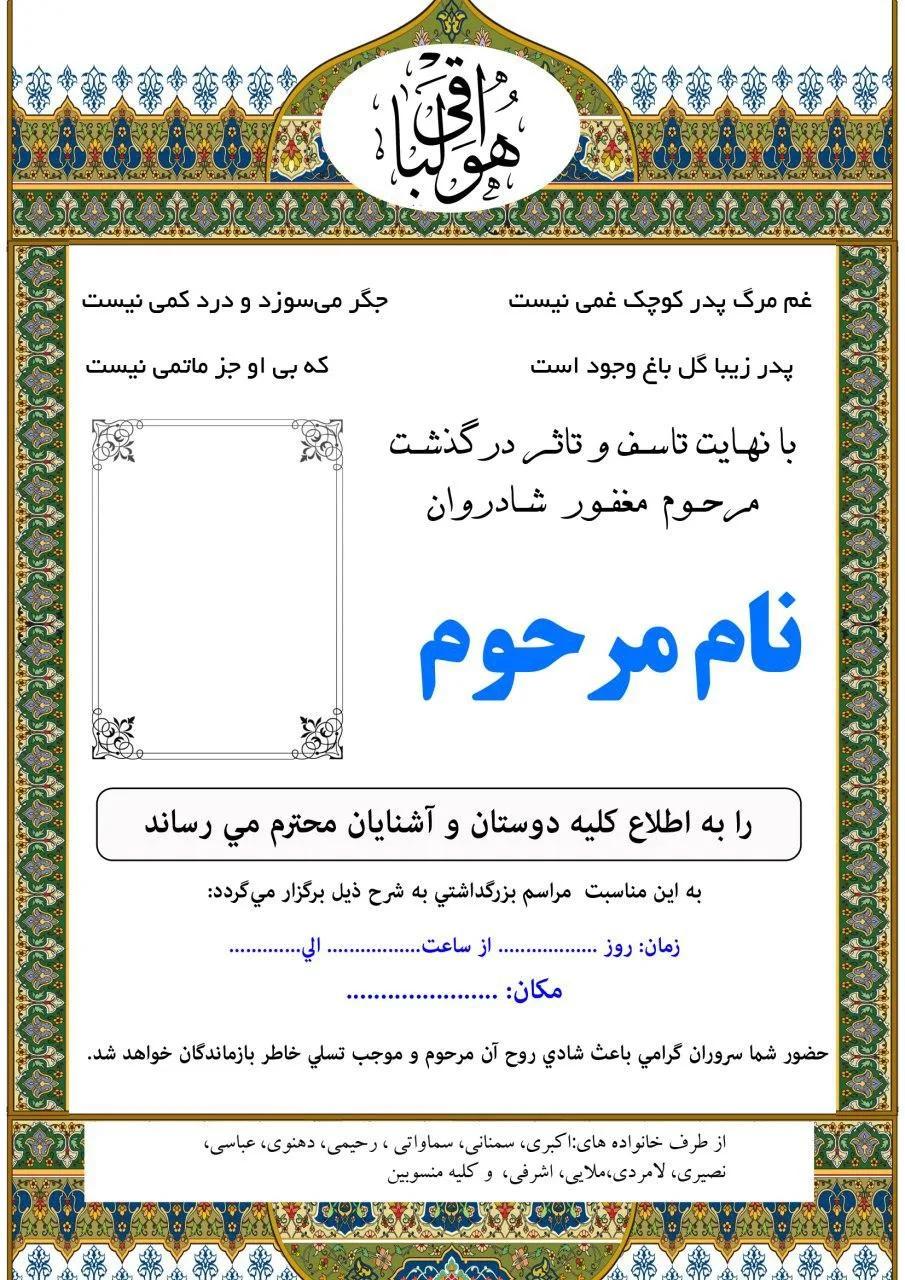 هوالباقی
غم مرگ پدر کوچک غمی نیست جگر می‌سوزد و درد کمی نیست
پدر زیبا گل باغ وجود است که بی او جز ماتمی نیست
با نهایت تاسف و تاثر درگذشت
مرحوم مغفور شادروان
نام مرحوم
را به اطلاع کلیه دوستان و آشنایان محترم مي رساند
به این مناسبت مراسم بزرگداشتي به شرح ذیل برگزار مي‌گردد:
زمان: روز .................. از ساعت................. الي.............
مکان: ......................
حضور شما سروران گرامي باعث شادي روح آن مرحوم و موجب تسلي خاطر بازماندگان خواهد شد.
از طرف خانواده های:اکبری، سمنانی، سماواتی ، رحیمی، دهنوی، عباسی،
نصیری، لامردی،ملایی، اشرفی، و کلیه منسوبین